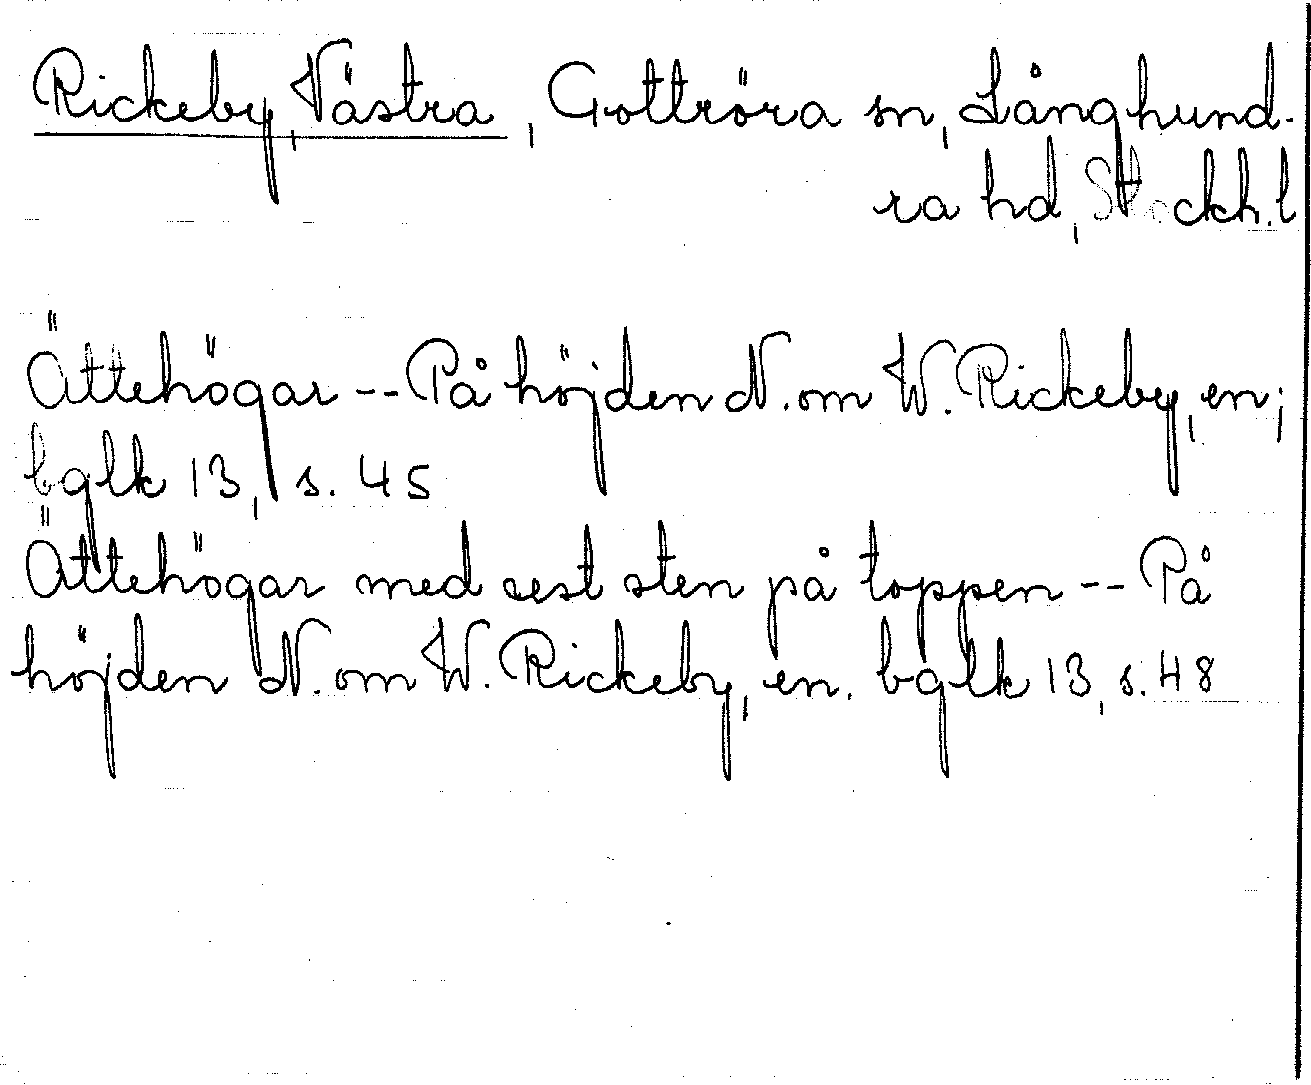 Rickeby, Västra, Gottröra sn, Långhund-
ra hd, Stockh. l
Ättehögar -- På höjden N. om W. Rickeby, en;
bglk 13, s. 45
Ättehögar med rest sten på toppen -- På
höjden N. om W. Rickeby, en. bglk 13, s. 48